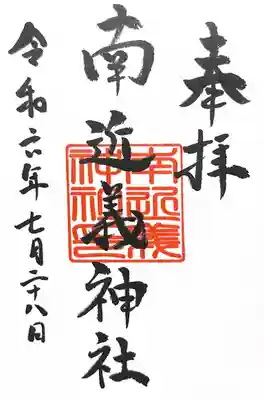 奉拝
南近義神社
令和六年七月二十八日
南近義神社印